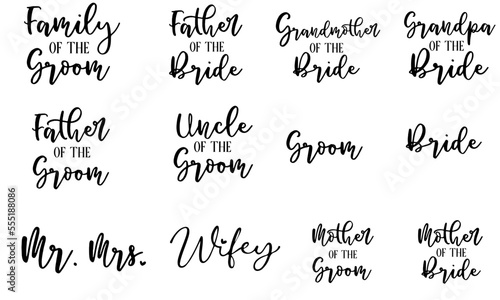 Family
OF THE
Groom
Father
OF THE
Bride
Grandmother
OF THE
Bride
Grandpa
OF THE
Bride
Father
OF THE
Groom
Uncle
OF THE
Groom
Groom
Bride
Mr. Mrs.
Wifey
Mother
OF THE
Groom
Mother
OF THE
Bride
Adobe Stock | #555188086
Adobe Stock